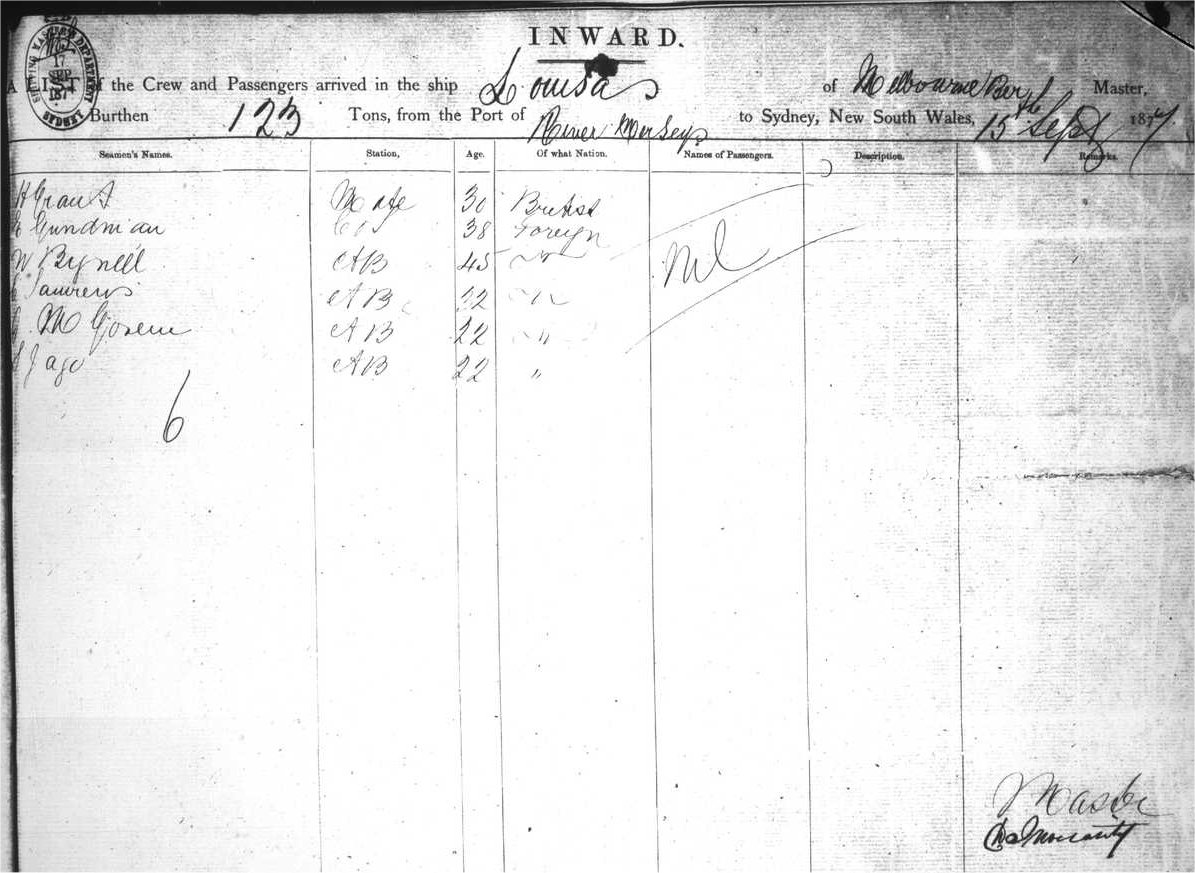 INWARD.
A LIST of the Crew and Passengers arrived in the ship Louisa of Melbourne Master,
Burthen 123 Tons, from the Port of River Mersey to Sydney, New South Wales, 15th Sept 1874
Seamen's Names. Station, Age. Of what Nation. Names of Passengers. Description. Remarks.
H Grant Mate 30 British
Gundman 38 Foreign
W. Bynell AB 45 "
AB 22 "
AB 22 "
Jago AB 22 "
Nil
6
Master
SHIPPING MASTERS DEPARTMENT
17
SEP
SYDNEY